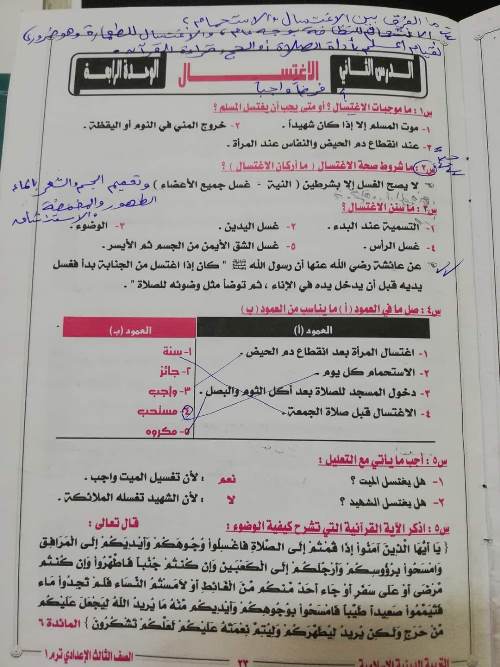 ما الفرق بين الاغتسال والاستحمام؟
الدرس الثاني الاغتسال الوحدة الرابعة
س١ : ما موجبات الاغتسال ؟ أو متى يجب أن يغتسل المسلم ؟
١- موت المسلم إلا إذا كان شهيداً . ٢- خروج المني في النوم أو اليقظة .
٣- عند انقطاع دم الحيض والنفاس عند المرأة .
س٢ : ما شروط صحة الاغتسال ( ما أركان الاغتسال ) ؟
لا يصح الغسل إلا بشرطين ( النية - غسل جميع الأعضاء ) وتعميم الجسم والشعر بالماء
الطهور والمضمضة
والاستنشاق
س٣ : ما سنن الاغتسال ؟
١- التسمية عند البدء . ٢- غسل اليدين . ٣- الوضوء .
٤- غسل الرأس . ٥- غسل الشق الأيمن من الجسم ثم الأيسر .
عن عائشة رضي الله عنها أن رسول الله ﷺ " كان إذا اغتسل من الجنابة بدأ فغسل
يديه قبل أن يدخل يده في الإناء ، ثم توضأ مثل وضوئه للصلاة " .
س٤ : صل ما في العمود ( أ ) ما يناسب من العمود ( ب )
العمود (أ) العمود (ب)
١- اغتسال المرأة بعد انقطاع دم الحيض . ١- سنة
٢- الاستحمام كل يوم . ٢- جائز
٣- دخول المسجد للصلاة بعد أكل الثوم والبصل . ٣- واجب
٤- الاغتسال قبل صلاة الجمعة . ٤- مستحب
٥- مكروه
س٥ : أجب ما يأتي مع التعليل :
١- هل يغتسل الميت ؟ نعم : لأن تغسيل الميت واجب .
٢- هل يغتسل الشهيد ؟ لا : لأن الشهيد تغسله الملائكة .
س٥ : اذكر الآية القرآنية التي تشرح كيفية الوضوء : قال تعالى :
{ يَا أَيُّهَا الَّذِينَ آمَنُوا إِذَا قُمْتُمْ إِلَى الصَّلَاةِ فَاغْسِلُوا وُجُوهَكُمْ وَأَيْدِيَكُمْ إِلَى الْمَرَافِقِ
وَامْسَحُوا بِرُؤُوسِكُمْ وَأَرْجُلَكُمْ إِلَى الْكَعْبَيْنِ وَإِنْ كُنْتُمْ جُنُبًا فَاطَّهَّرُوا وَإِنْ كُنْتُمْ
مَرْضَى أَوْ عَلَى سَفَرٍ أَوْ جَاءَ أَحَدٌ مِنْكُمْ مِنَ الْغَائِطِ أَوْ لَامَسْتُمُ النِّسَاءَ فَلَمْ تَجِدُوا مَاءً
فَتَيَمَّمُوا صَعِيدًا طَيِّبًا فَامْسَحُوا بِوُجُوهِكُمْ وَأَيْدِيكُمْ مِنْهُ مَا يُرِيدُ اللَّهُ لِيَجْعَلَ عَلَيْكُمْ
مِنْ حَرَجٍ وَلَكِنْ يُرِيدُ لِيُطَهِّرَكُمْ وَلِيُتِمَّ نِعْمَتَهُ عَلَيْكُمْ لَعَلَّكُمْ تَشْكُرُونَ } المائدة ٦
التربية الدينية الإسلامية ٢٢ الصف الثالث الإعدادي ترم ١